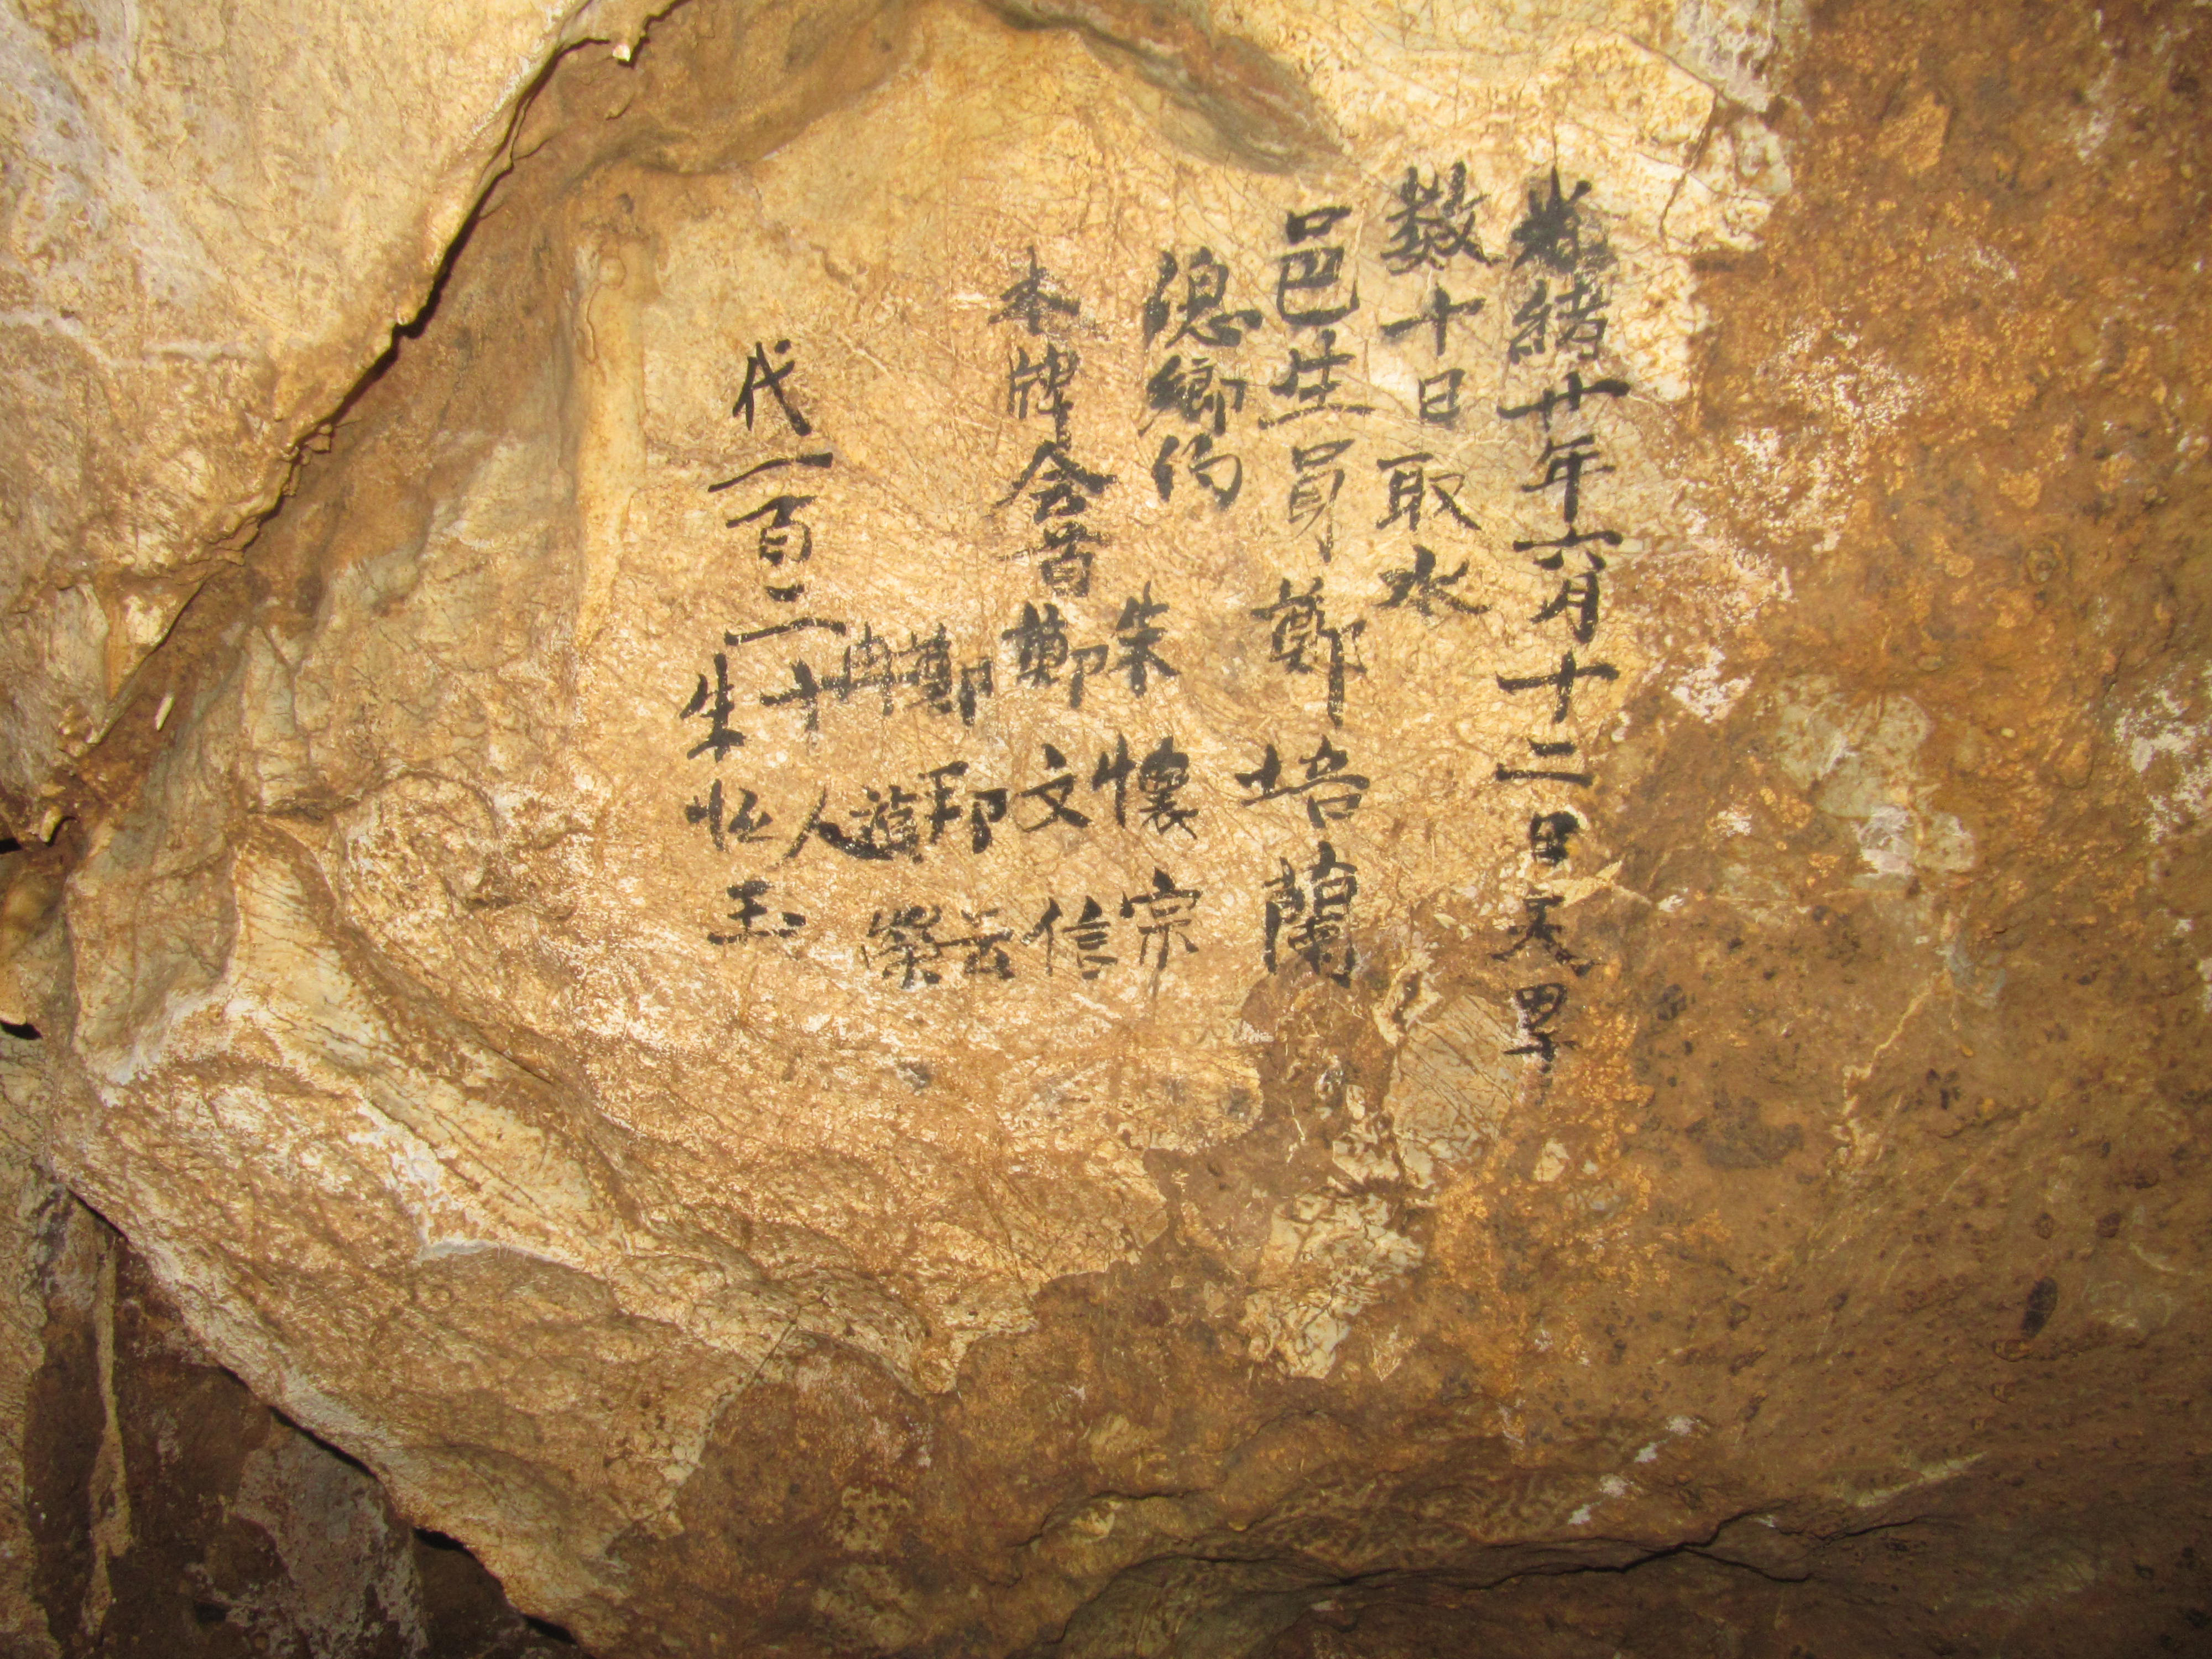 光緒廿年六月十二日天旱
數十日取水
邑生員鄭培蘭
總鄉約
朱懷宗
本牌会首鄭文信
鄭邦云
冉進榮
代一百二十人
朱恒玉